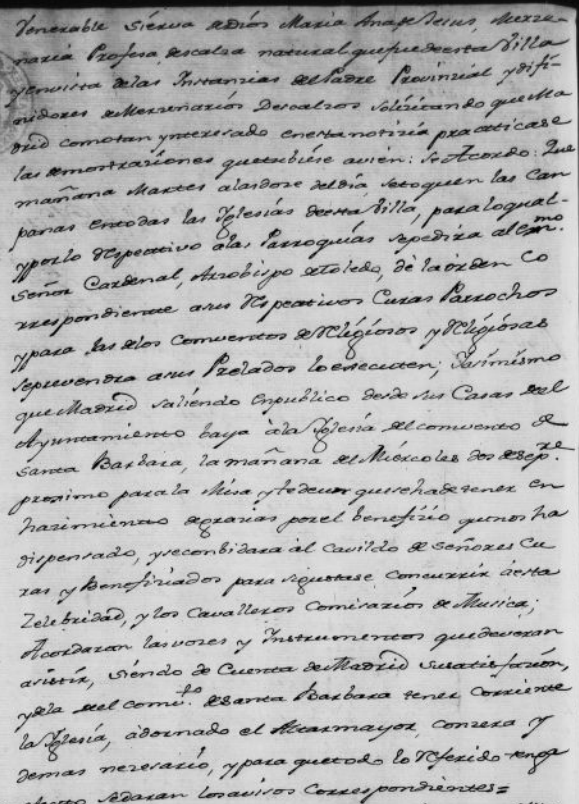 Venerable sierva de Dios Maria Ana de Jesus, Merze-
naria Profesa descalza natural que fue de esta Villa
y en vista de las Instanzias del Padre Provinzial y difi-
nidores de Merzenarios Descalzos solizitando que Ma
drid como tan ynteresado en esta notizia practicase
las demostraziones que tubiese a vien: Se Acordo: Que
mañana Martes a las doze del dia, se toquen las Can
panas en todas las Yglesias de esta Villa, para lo qual-
y por lo respectivo a las Parroquias se pedira al Em.mo
Señor Cardenal, Arzobispo de Toledo, dé la órden Co
rrespondiente a sus respectivos Curas Parrochos
y para las de los Comventos de Religiosos y Religiosas
se prevendra a sus Prelados lo executen; Y asimismo
que Madrid saliendo en publico desde sus Casas del
Ayuntamiento baya à la Yglesia del comvento de
Santa Barbara, la mañana del Miércoles dos de Sep.re
proximo para la Misa y tedeum que se ha de tener en
hazimiento de grazias por el benefizio que nos ha
dispensado, y se conbidara al Cavildo de Señores Cu
ras y Benefiziados para si gustase concurrir a esta
Zelebridad, y los Cavalleros Comisarios de Musica;
Acordaran las vozes y Ynstrumentos que deveran
asistir, siendo de Cuenta de Madrid su satisfazion,
y de la del comv.to de Santa Barbara tener corriente
la Yglesia, adornado el Altar mayor, con zera y
demas nezesario, y para que todo lo referido tenga
efecto se daran los avisos Correspondientes=